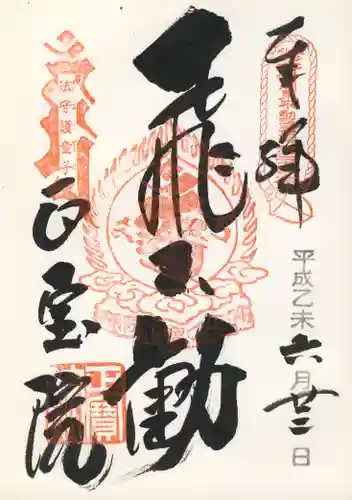 奉拝
平成乙未六月廿二日
飛不動
法守護童子
正宝院
正寶院